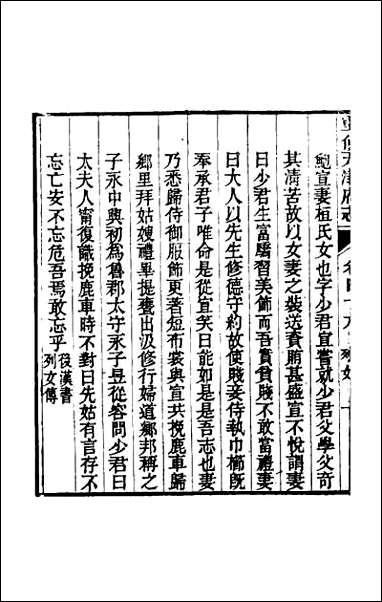 重修天津府志 卷四十九 列女 一
鮑宣妻桓氏女也字少君宣嘗就少君父學父奇
其清苦故以女妻之裝送資賄甚盛宣不悅謂妻
曰少君生富驕習美飾而吾實貧賤不敢當禮妻
曰大人以先生修德守約故使賤妾侍執巾櫛既
奉承君子唯命是從宣笑曰能如是是吾志也妻
乃悉歸侍御服飾更著短布裳與宣共挽鹿車歸
鄉里拜姑嫂禮畢提甕出汲修行婦道鄉邦稱之
子永中興初爲魯郡太守永子昱從容問少君曰
太夫人甯復識挽鹿車時不對曰先姑有言存不
忘亡安不忘危吾焉敢忘乎 後漢書列女傳